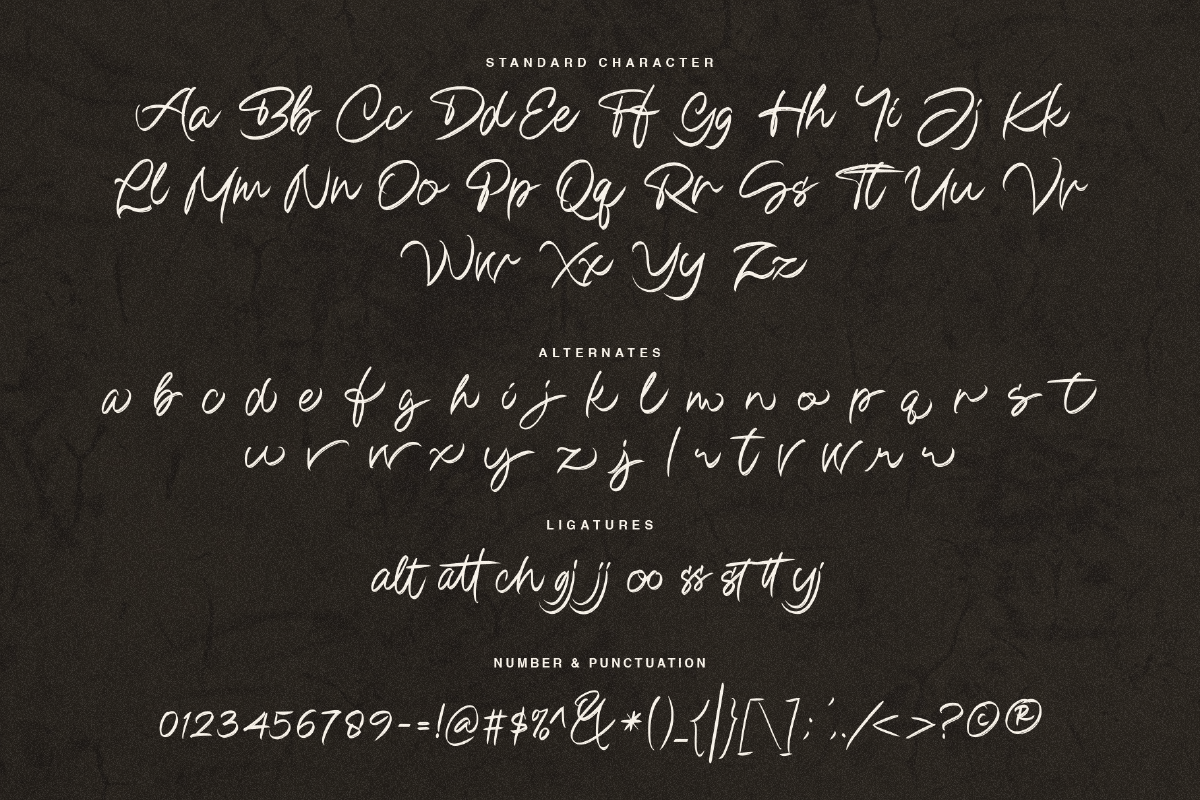 STANDARD CHARACTER
Aa Bb Cc Dd Ee Ff Gg Hh Ii Jj Kk
Ll Mm Nn Oo Pp Qq Rr Ss Tt Uu Vv
Ww Xx Yy Zz
ALTERNATES
a b c d e f g h i j k l m n o p q r s t
u v w x y z j l u t v w r u
LIGATURES
alt att ch gj jj oo ss st tt yj
NUMBER & PUNCTUATION
0123456789-=!@#$%^&*()_{|}[\];',./<>?©®